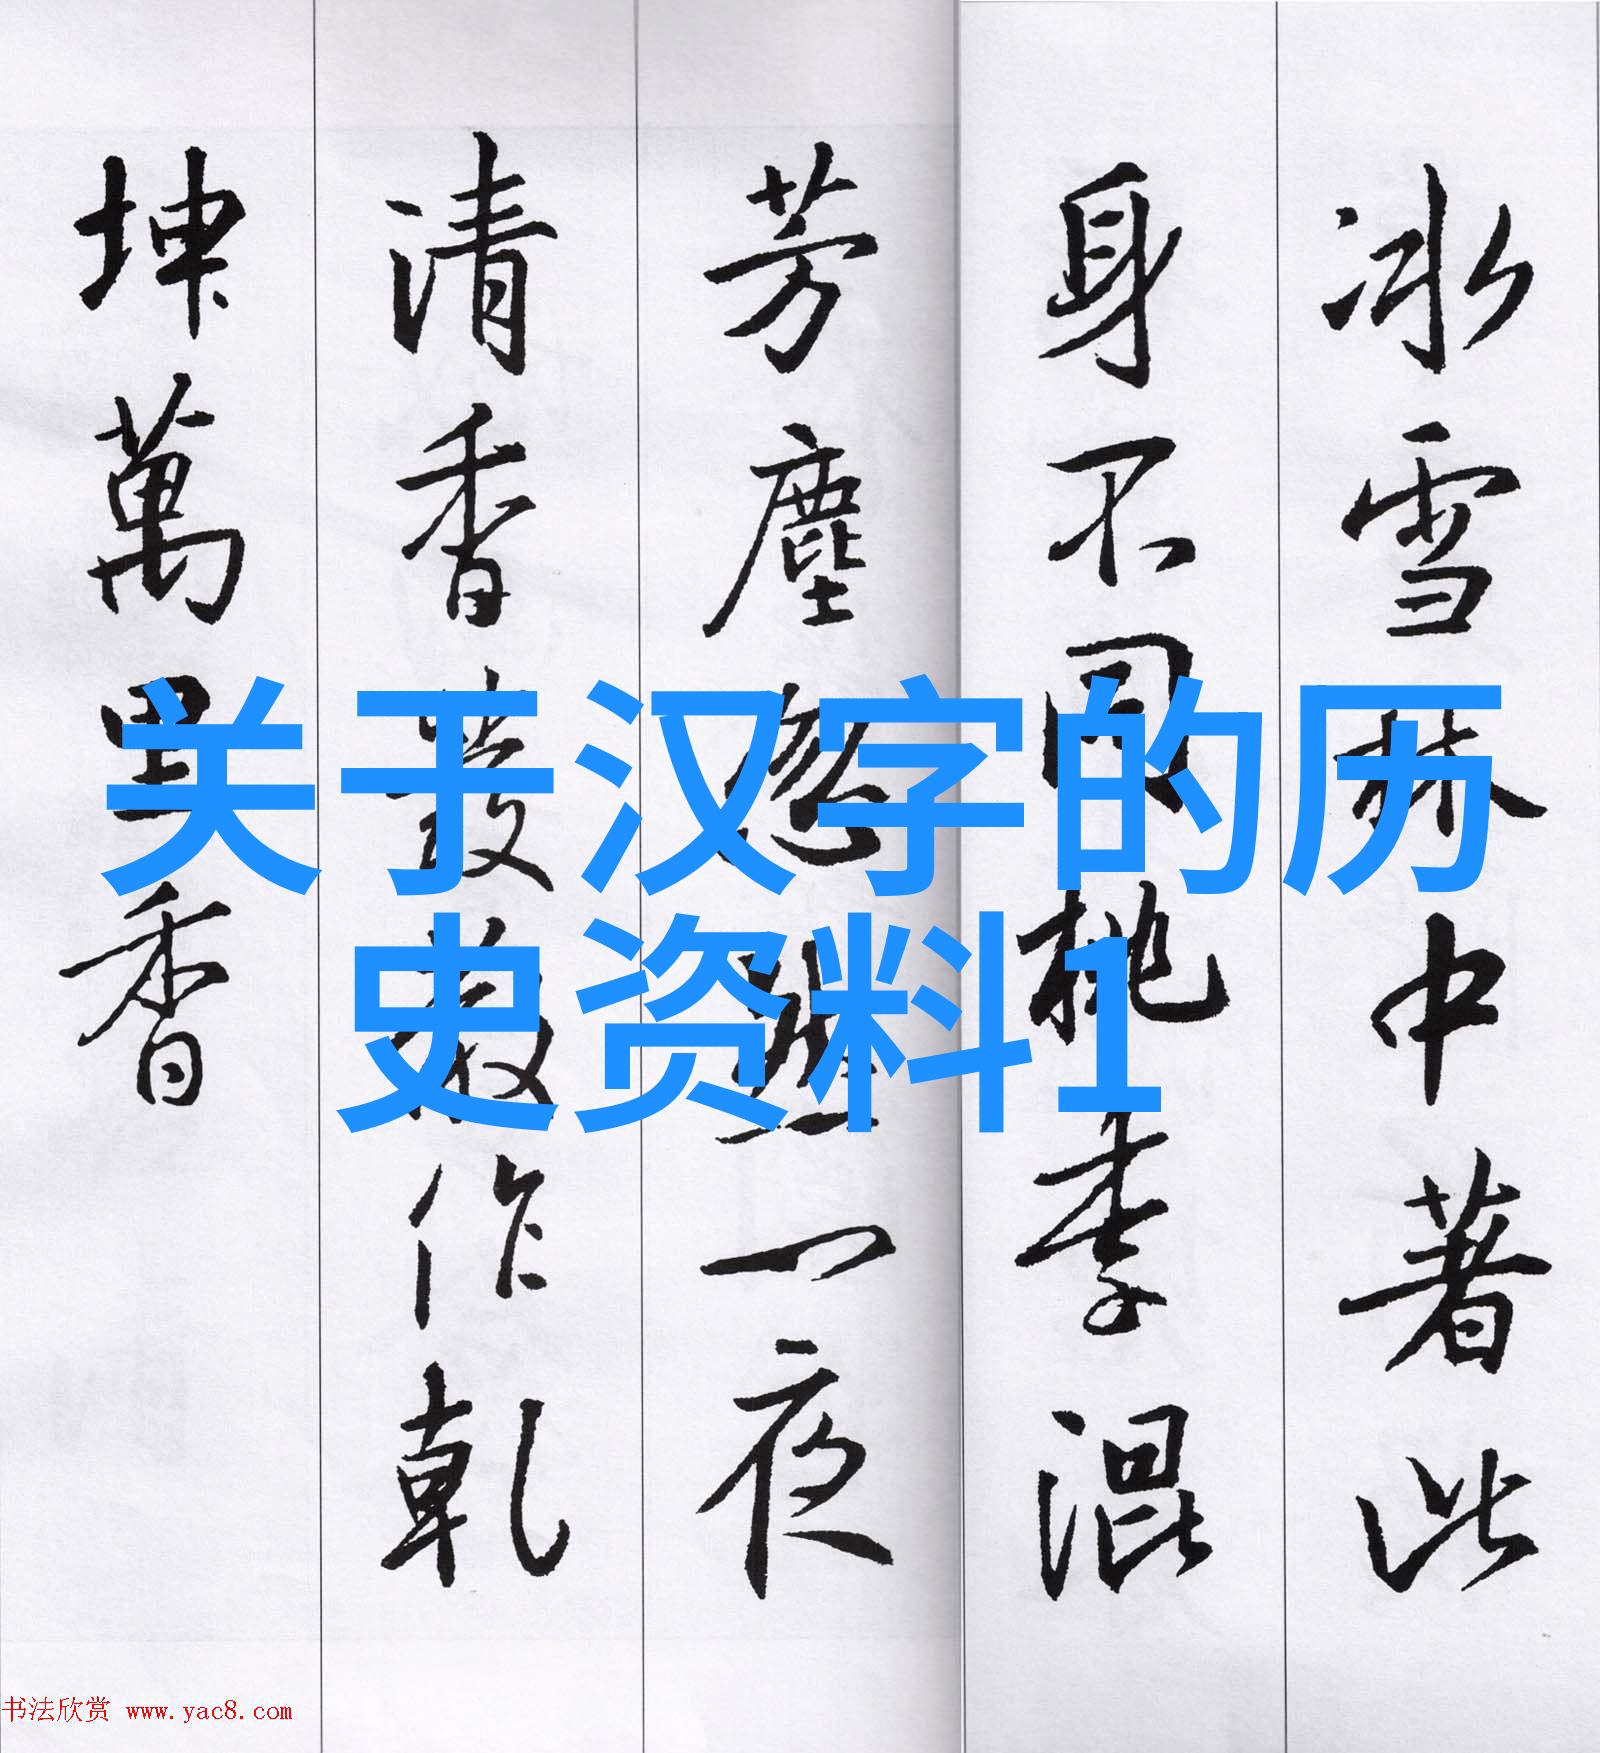 冰雪林中著此
身不同桃李混
芳塵忽然一夜
清香發散作乾
坤萬里香
关于汉字的历
史资料1
书法欣赏 www.yac8.com